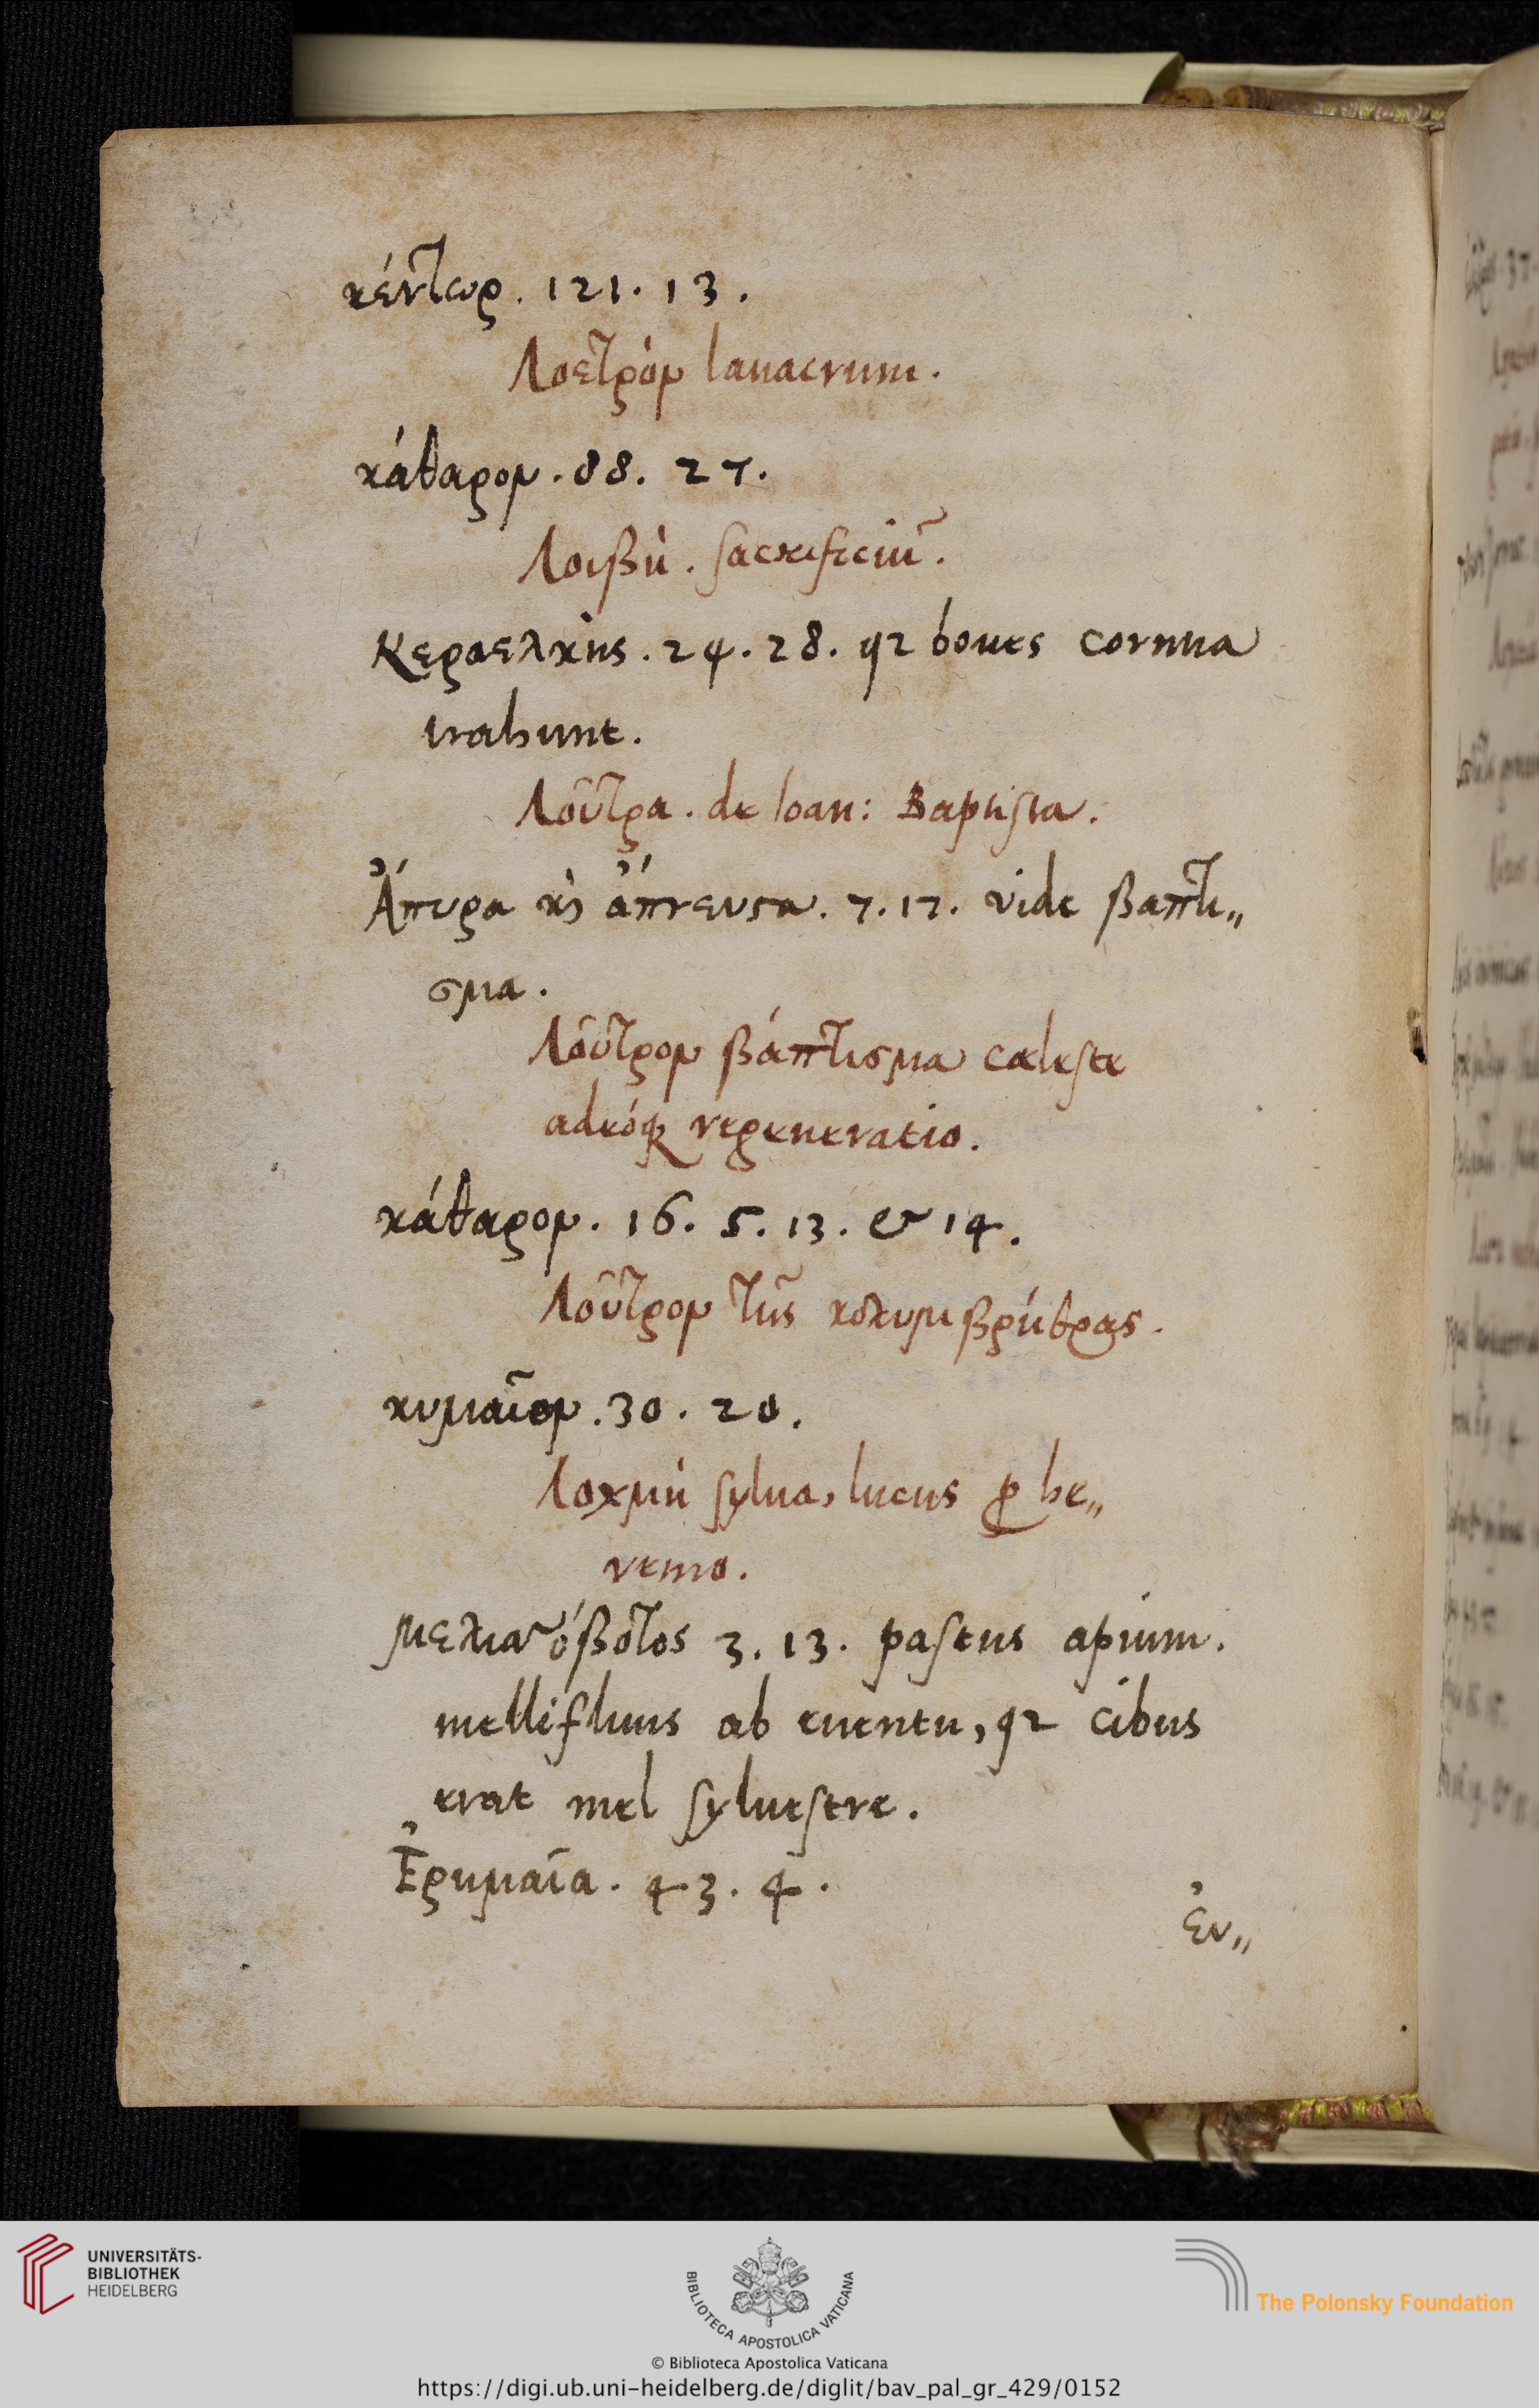 κέντωρ. 121. 13.
Λοετρὸν lauacrum.
κάθαρον. 88. 27.
Λοιβὴ. sacrificiũ.
Κεροελκὴς. 24. 28. qꝛ boues cornua
trahunt.
Λοῦτρα. de Ioan: Baptista.
Ἄπυρα κὴ ἄπνευστα. 7. 17. vide βαπτι„
σμα.
Λοῦτρον βάπτισμα cæleste
adeóqꝫ regeneratio.
κάθαρον. 16. 5. 13. & 14.
Λοῦτρον τῆς κολυμβρήθρας.
κυμαῖον. 30. 20.
Λοχμὴ sylua, lucus ꝓ he„
remo.
μελισσόβοτος 3. 13. pastus apium.
mellifluus ab euentu, qꝛ cibus
erat mel syluestre.
Ἐρημαῖα. 43. 4.
ἐν„
UNIVERSITÄTS-
BIBLIOTHEK
HEIDELBERG
BIBLIOTECA APOSTOLICA VATICANA
The Polonsky Foundation
© Biblioteca Apostolica Vaticana
https://digi.ub.uni-heidelberg.de/diglit/bav_pal_gr_429/0152